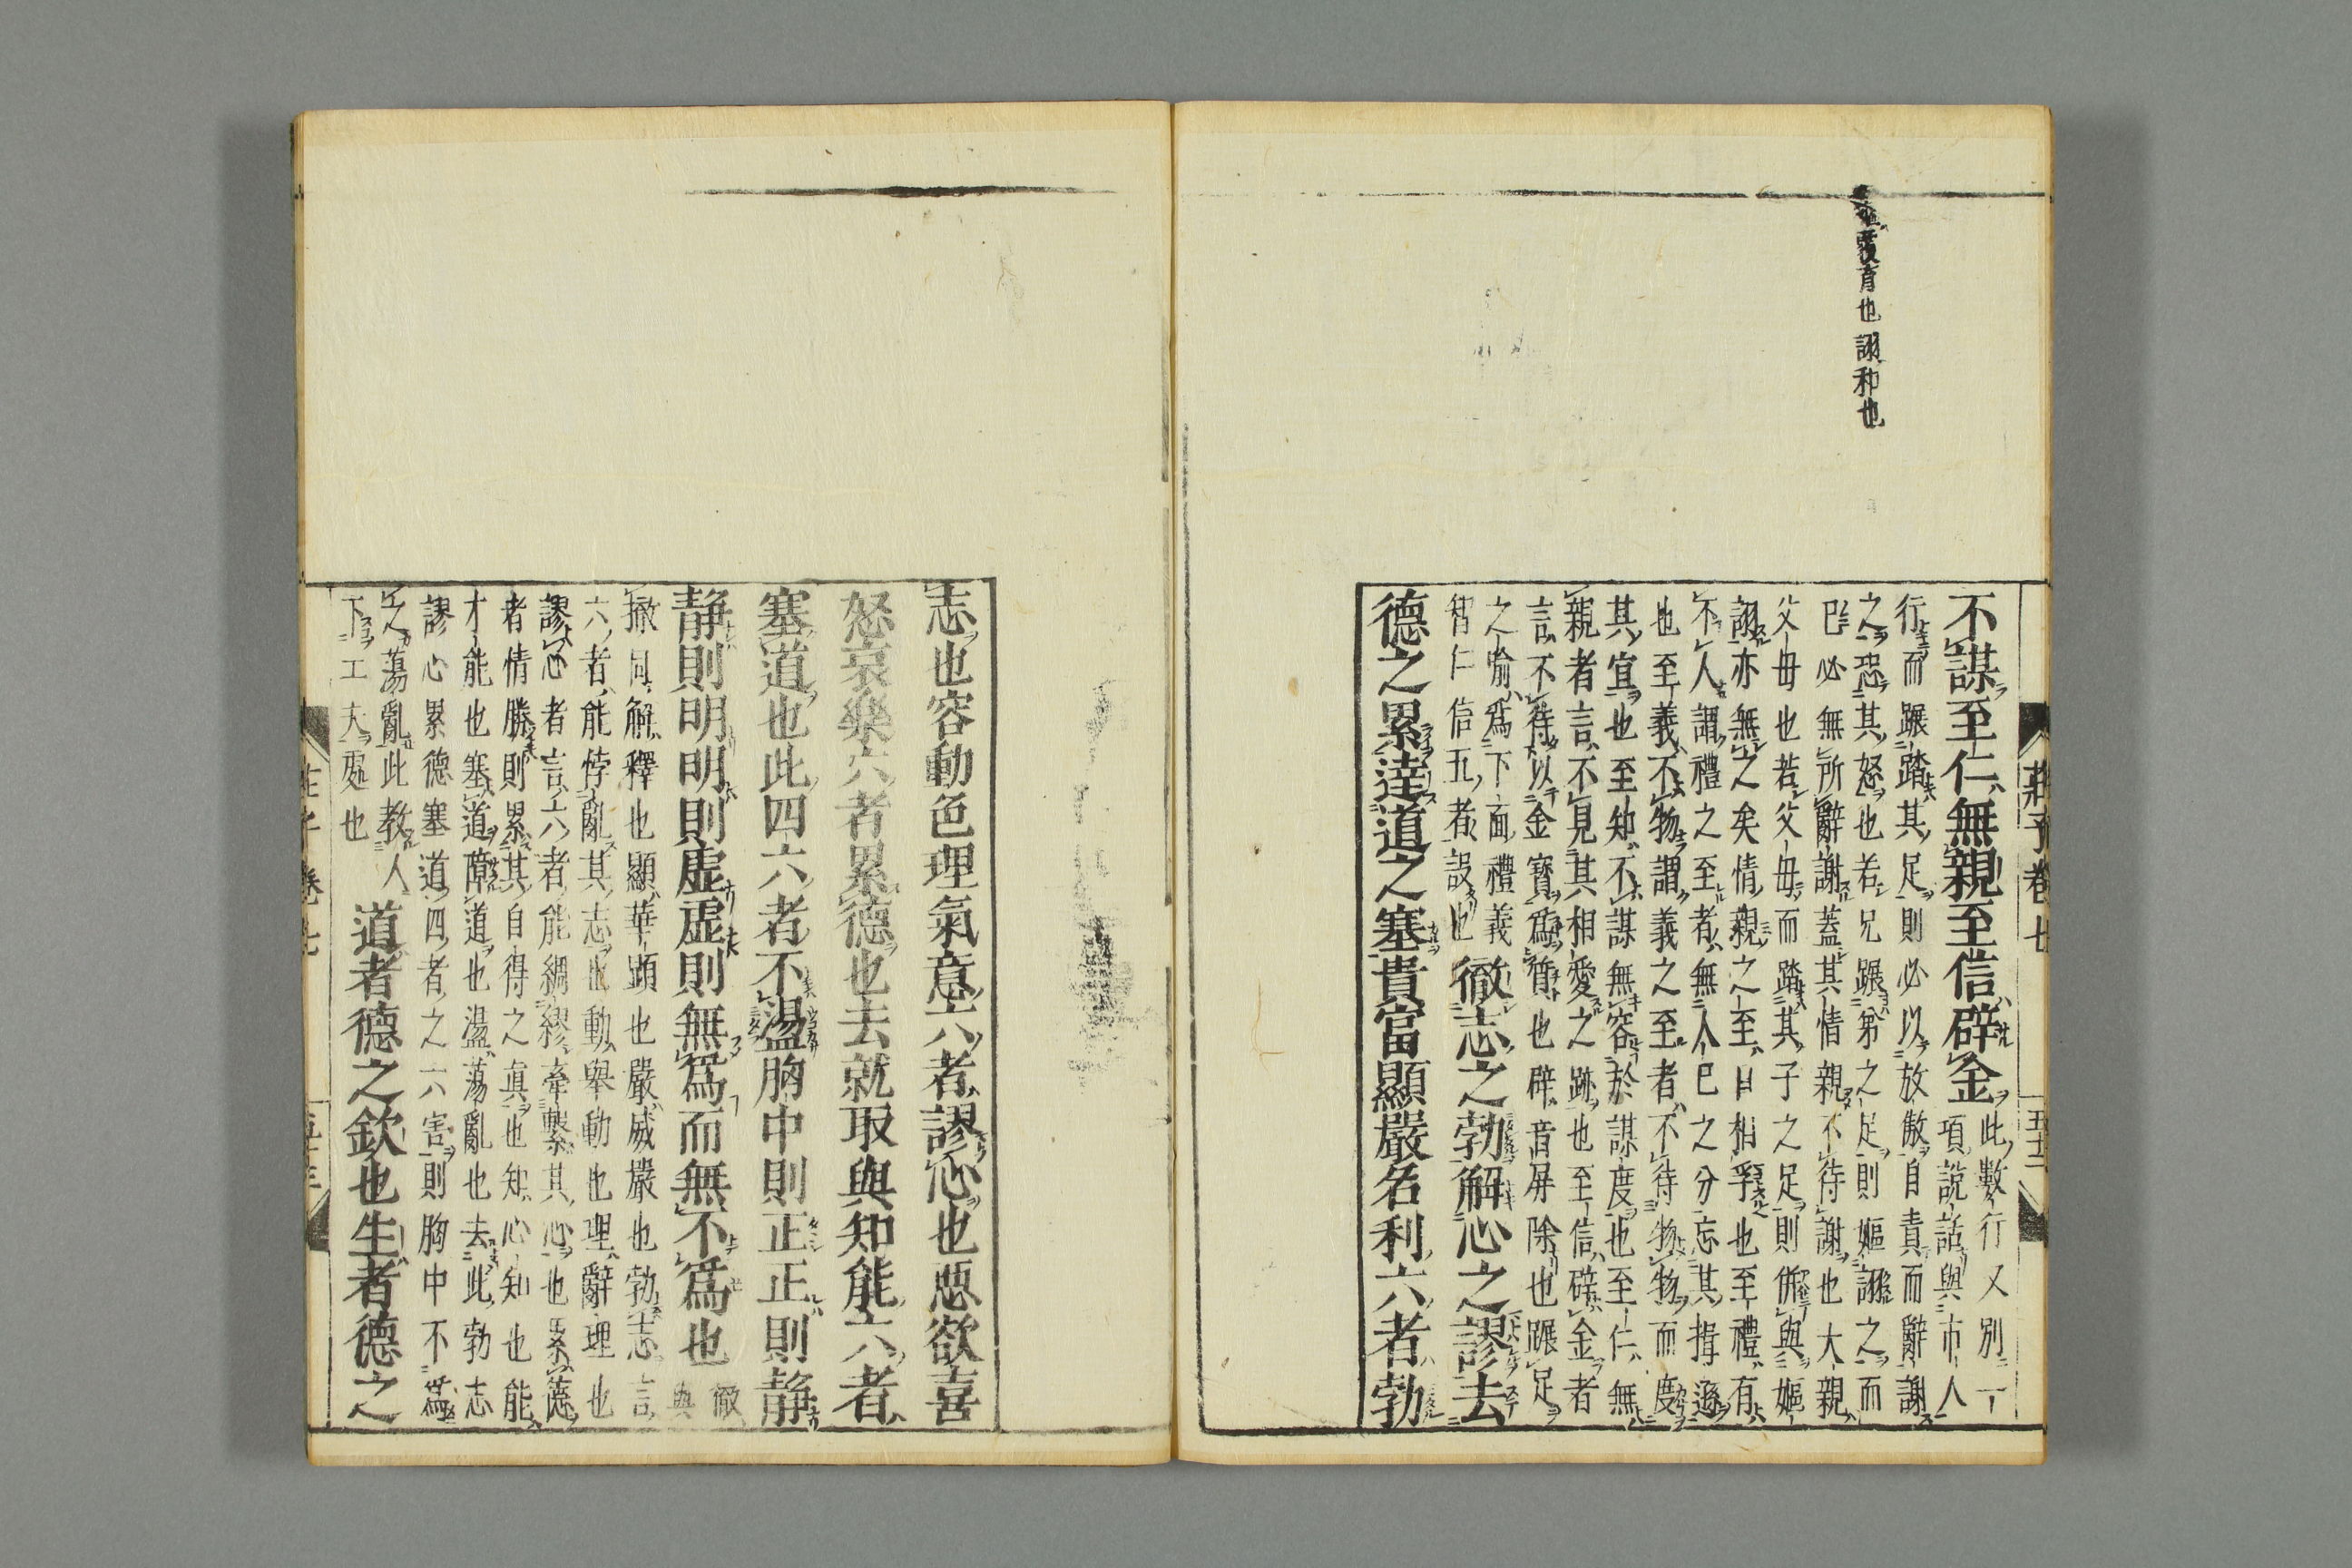 嫗覆育也 詡和也
莊子卷七 五十二
不謀至仁無親至信辟金
此數行又別一
項說話與市人
行而蹍踏其足則必以放傲自責而辭謝
之恐其怒也若兄蹍弟之足則嫗詡之而
巳必無所辭謝蓋其情親不待謝也大親
父母也若父母而踏其子之足則倂與嫗
詡亦無之矣情親之至日相孚也至禮有
不人謂禮之至者無人巳之分忘其揖遜
也至義不物謂義之至者不待物物而度
其宜也至知不謀無容於謀度也至仁無
親者言不見其相愛之跡也至信辟金者
言不待以金寶爲質也辟音屏除也蹍足
之喻爲下面禮義
智仁信五者設也
徹志之勃解心之謬去
德之累達道之塞貴富顯嚴名利六者勃
志也容動色理氣意六者謬心也惡欲喜
怒哀樂六者累德也去就取與知能六者
塞道也此四六者不盪胸中則正正則靜
靜則明明則虛虛則無爲而無不爲也
徹與
撤同解釋也顯華顯也嚴威嚴也勃志言
六者能悖亂其志也動舉動也理辭理也
謬心者言六者能綢繆牽繫其心也累德
者情勝則累其自得之眞也知心知也能
才能也塞道障道也盪蕩亂也去此勃志
謬心累德塞道四者之六害則胸中不爲
之蕩亂此教人
下工夫處也
道者德之欽也生者德之
莊子卷七 五十三